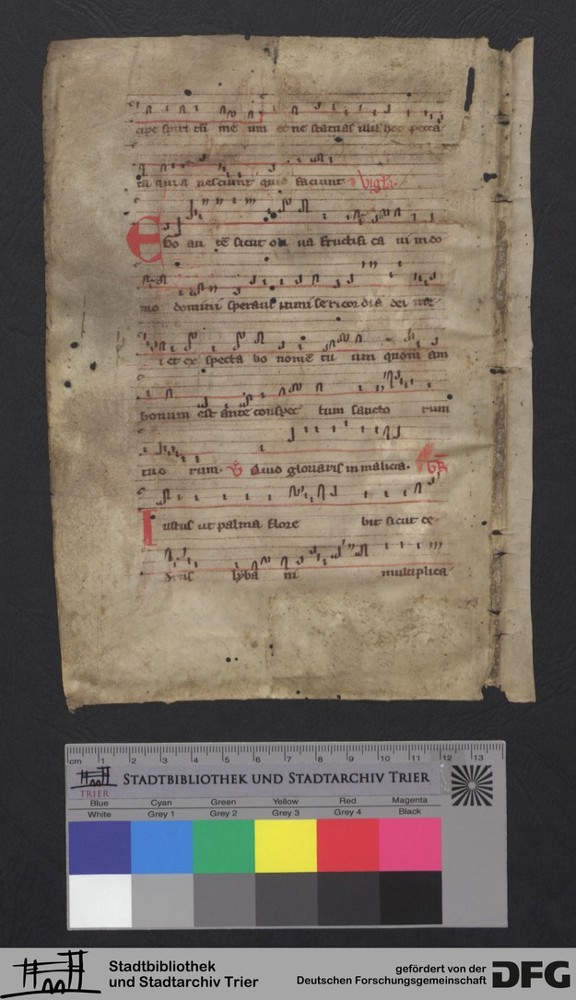 cipe spiri tū me um et ne statuas illis hoc pecca
ta quia nesciunt quid faciunt
Ego au tē sicut oli ua fructifi ca ui in do
mo domini speraui
et ex specta bo nomē tu um quoni am
bonum est ante conspec tum sancto rum
tuo rum. Quid gloriaris in malicia.
Iustus ut palma flore bit sicut ce
lyba ni multiplica
cm 1 2 3 4 5 6 7 8 9 10 11 12 13
TRIER
STADTBIBLIOTHEK UND STADTARCHIV TRIER
Blue Cyan Green Yellow Red Magenta
White Grey 1 Grey 2 Grey 3 Grey 4 Black
Stadtbibliothek
und Stadtarchiv Trier
gefördert von der
Deutschen Forschungsgemeinschaft
DFG